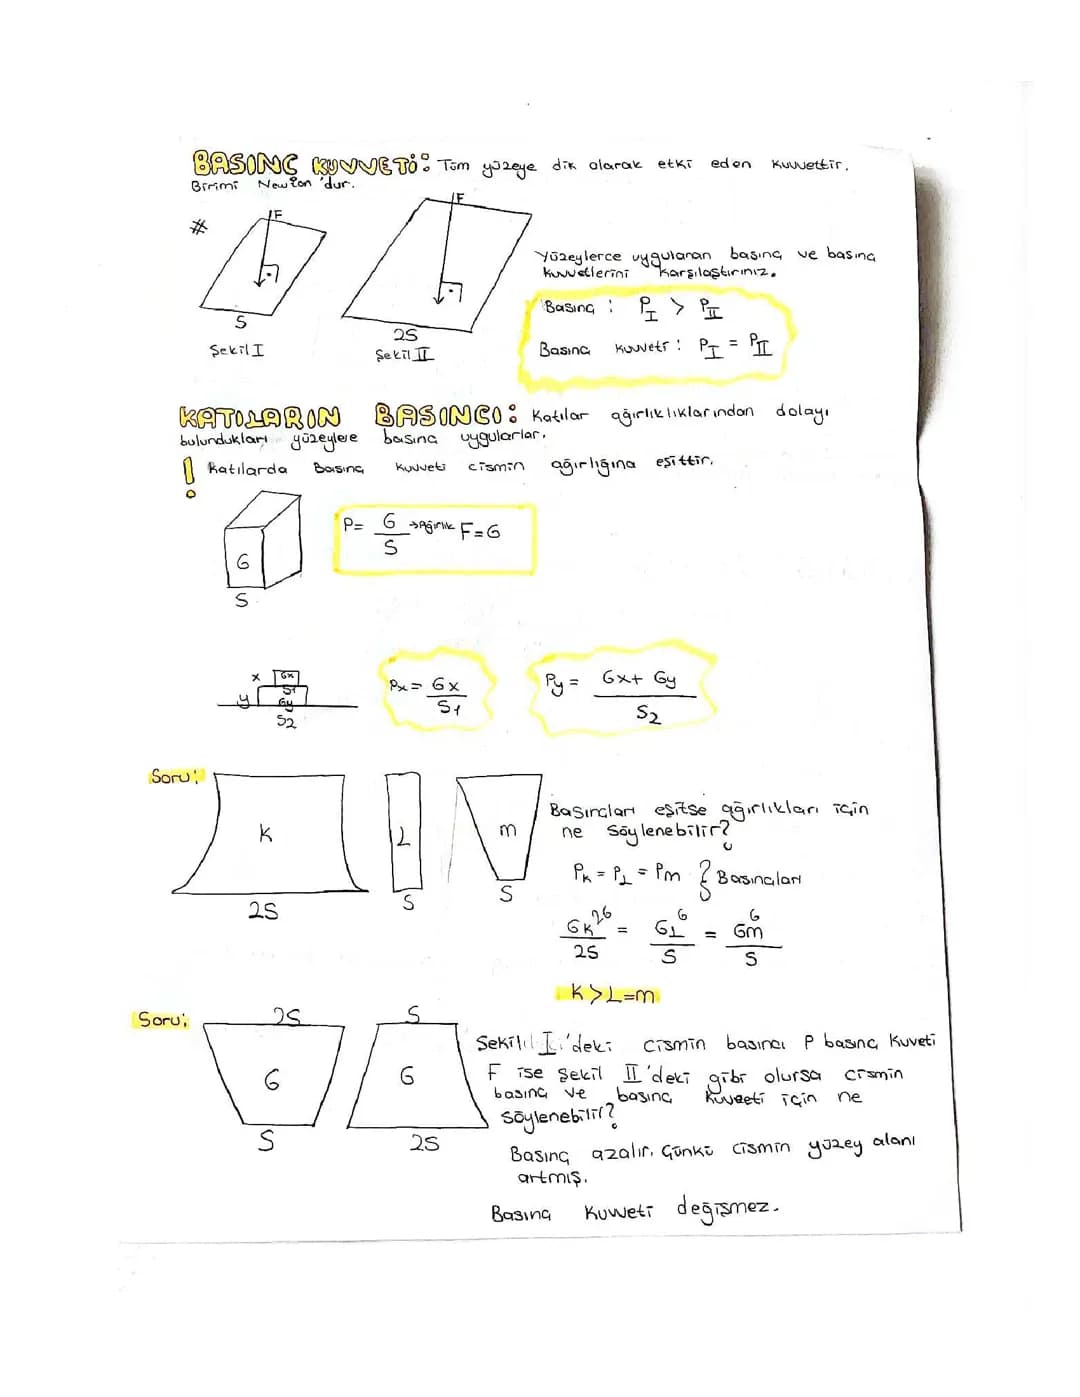 BASINÇ KUVVETİ: Tüm yüzeye dik olarak etki eden kuvvettir.
Birimi Newton'dur.
#
F
F
S
Şekil I
2S
Şekil II
Yüzeylerce uygulanan basınç ve basınç
kuvvetlerini karşılaştırınız.
Basınç : P_I > P_II
Basınç kuvveti : P_I = P_II
KATILARIN BASINCI: Katılar ağırlıklıklarından dolayı
bulundukları yüzeylere basınç uygularlar.
! Katılarda Basınç kuvveti cismin ağırlığına eşittir.
G
S
P = G/S → Ağırlık F = G
x Gx
S1
y Gy
S2
Px = Gx/S1
Py = Gx + Gy/S2
Soru:
K
2S
L
S
m
S
Basınçları eşitse ağırlıkları için
ne söylenebilir?
PK = PL = Pm } Basınçları
GK 2G/2S = GL G/S = Gm G/S
K > L = m
Soru:
2S
G
S
S
G
2S
Şekil I'deki cismin basıncı P basınç kuveti
F ise şekil II'deki gibi olursa cismin
basınç ve basınç kuvveti için ne
söylenebilir?
Basınç azalır. Çünkü cismin yüzey alanı
artmış.
Basınç kuvveti değişmez.